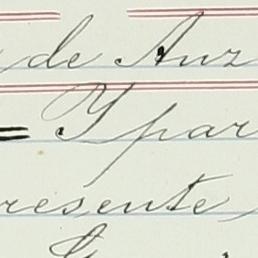 de Anz
= Y par
resente